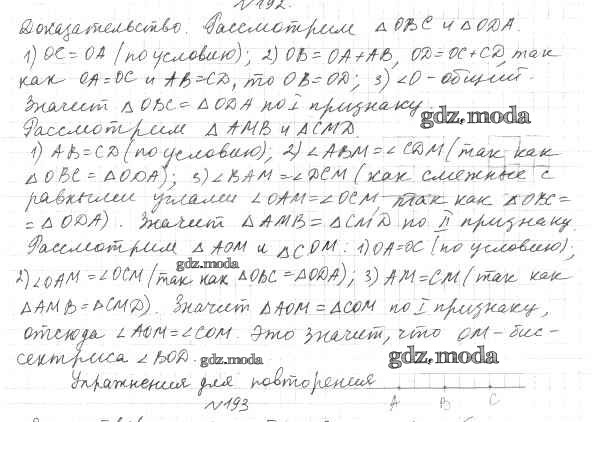 №192.
Доказательство. Рассмотрим △OBC и △ODA.
1) OC=OA (по условию); 2) OB=OA+AB, OD=OC+CD, так
как OA=OC и AB=CD, то OB=OD; 3) ∠O-общий.
Значит △OBC=△ODA по I признаку.
gdz.moda
Рассмотрим △AMB и △CMD.
1) AB=CD (по условию); 2) ∠ABM=∠CDM (так как
△OBC=△ODA); 3) ∠BAM=∠DCM (как смежные с
равными углами ∠OAM=∠OCM, так как △OBC=
=△ODA). Значит △AMB=△CMD по II признаку.
Рассмотрим △AOM и △COM: 1) OA=OC (по условию);
gdz.moda
2) ∠OAM=∠OCM (так как △OBC=△ODA); 3) AM=CM (так как
△AMB=△CMD). Значит △AOM=△COM по I признаку,
отсюда ∠AOM=∠COM. Это значит, что OM-бис-
сектриса ∠BOD.
gdz.moda
gdz.moda
Упражнения для повторения
№193
A B C